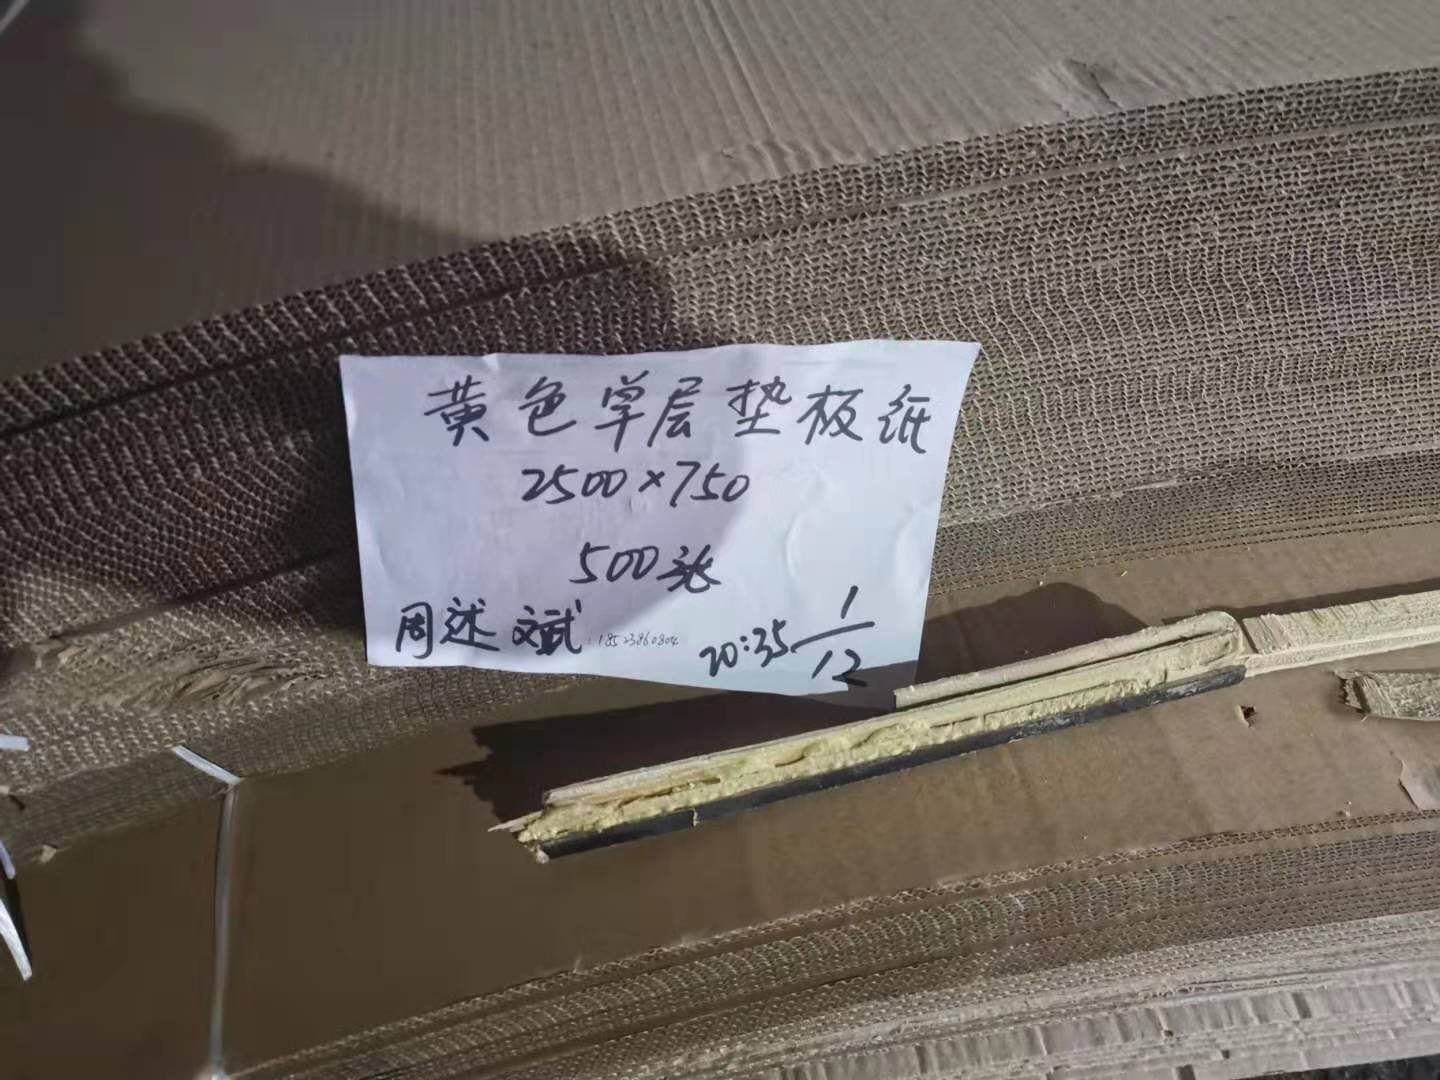 黄色单层垫板纸
2500×750
500张
周述文斌 20:35 1/12